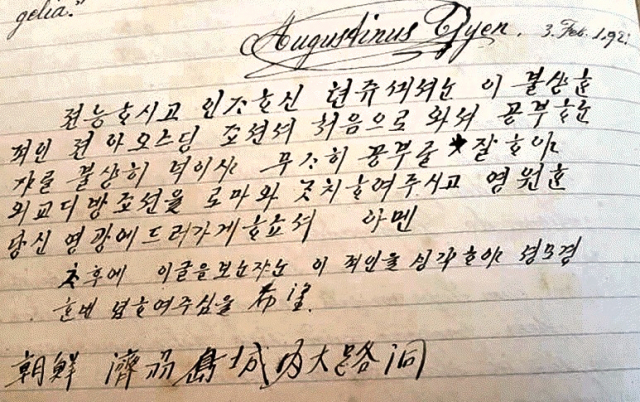 gelia."
Augustinus Tyen. 3. Feb. 1.921
전능ᄒᆞ시고 인ᄌᆞᄒᆞ신 텬쥬께셔는 이 불샹ᄒᆞᆫ
죄인 전 아오스딩 조션셔 처음으로 와셔 공부ᄒᆞᄂᆞᆫ
자를 불샹히 넉이샤 무ᄉᆞ히 공부를 잘ᄒᆞ야
외교디방조션을 로마와 ᄀᆞᆺ치ᄒᆞ여주시고 영원ᄒᆞᆫ
당신 영광에드러가게ᄒᆞ쇼셔 아멘
ᄎᆞ후에 이글을보ᄂᆞᆫ자ᄂᆞᆫ 이 죄인을 싱각ᄒᆞ야 셩모경
ᄒᆞᆫ번 념ᄒᆞ여주심을 希望.
朝鮮 濟州島城內大路洞